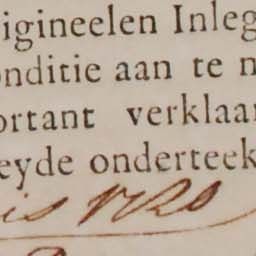 igineelen Inleg
onditie aan te n
ortant verklaar
eyde onderteek
is 1720